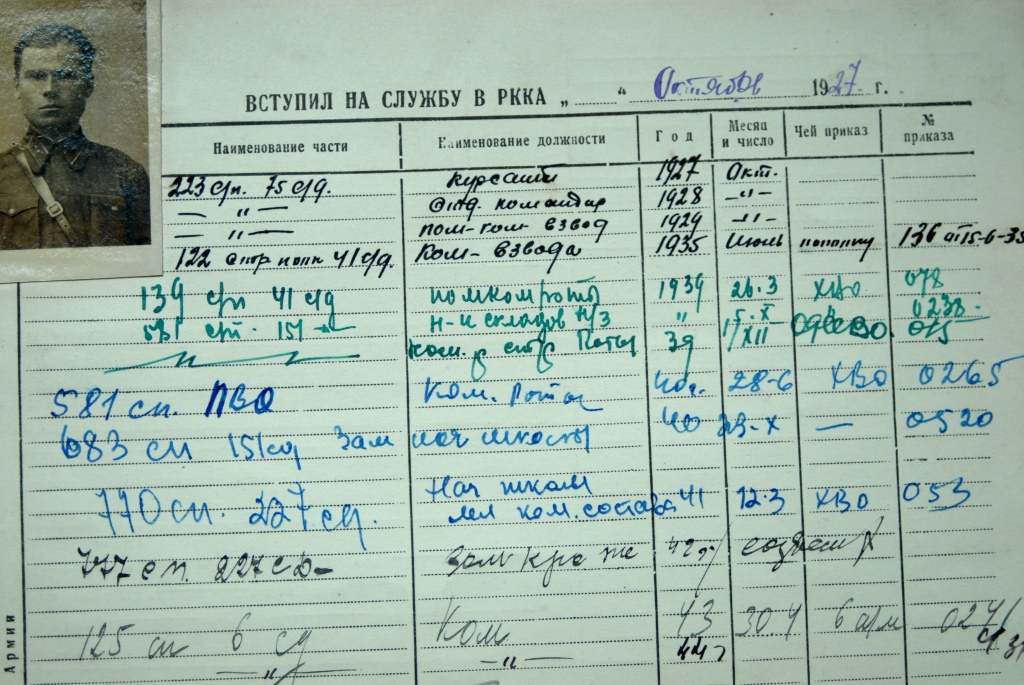 ВСТУПИЛ НА СЛУЖБУ В РККА „ “ Октября 1927 г.
Наименование части Наименование должности Год Месяц и число Чей приказ № приказа
223 с/п. 75 с/д. курсант 1927 Окт.
— " — отд. командир 1928 — " —
— " — пом-ком-взвод 1929 — " —
122 стр полк 41 с/д. Ком-взвода 1935 Июнь по полку 136 от 15-6-35
139 с/п 41 с/д помкомроты 1939 26.3 ХВО 078
н-к складов Н/З " 5.X 0238
581 с/п. 151 ком. стр роты 39 1/XII 015
581 сп. ПВО Ком. роты 40г. 28-6 ХВО 0265
683 сп 151 сд Зам нач школы 40 23-X — 0520
770 сп. 227 сд. Нач школ мл ком. состава 41 12.3 ХВО 053
777 сп. 227 СД 42
125 сп 6 сд Ком 43 30.4 6 арм
— " — — " — 44
Армии